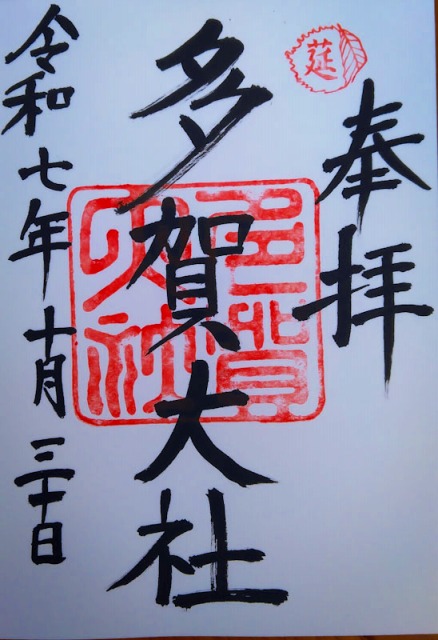 奉拝
莚
多賀大社
多賀大社
令和七年十月三十日